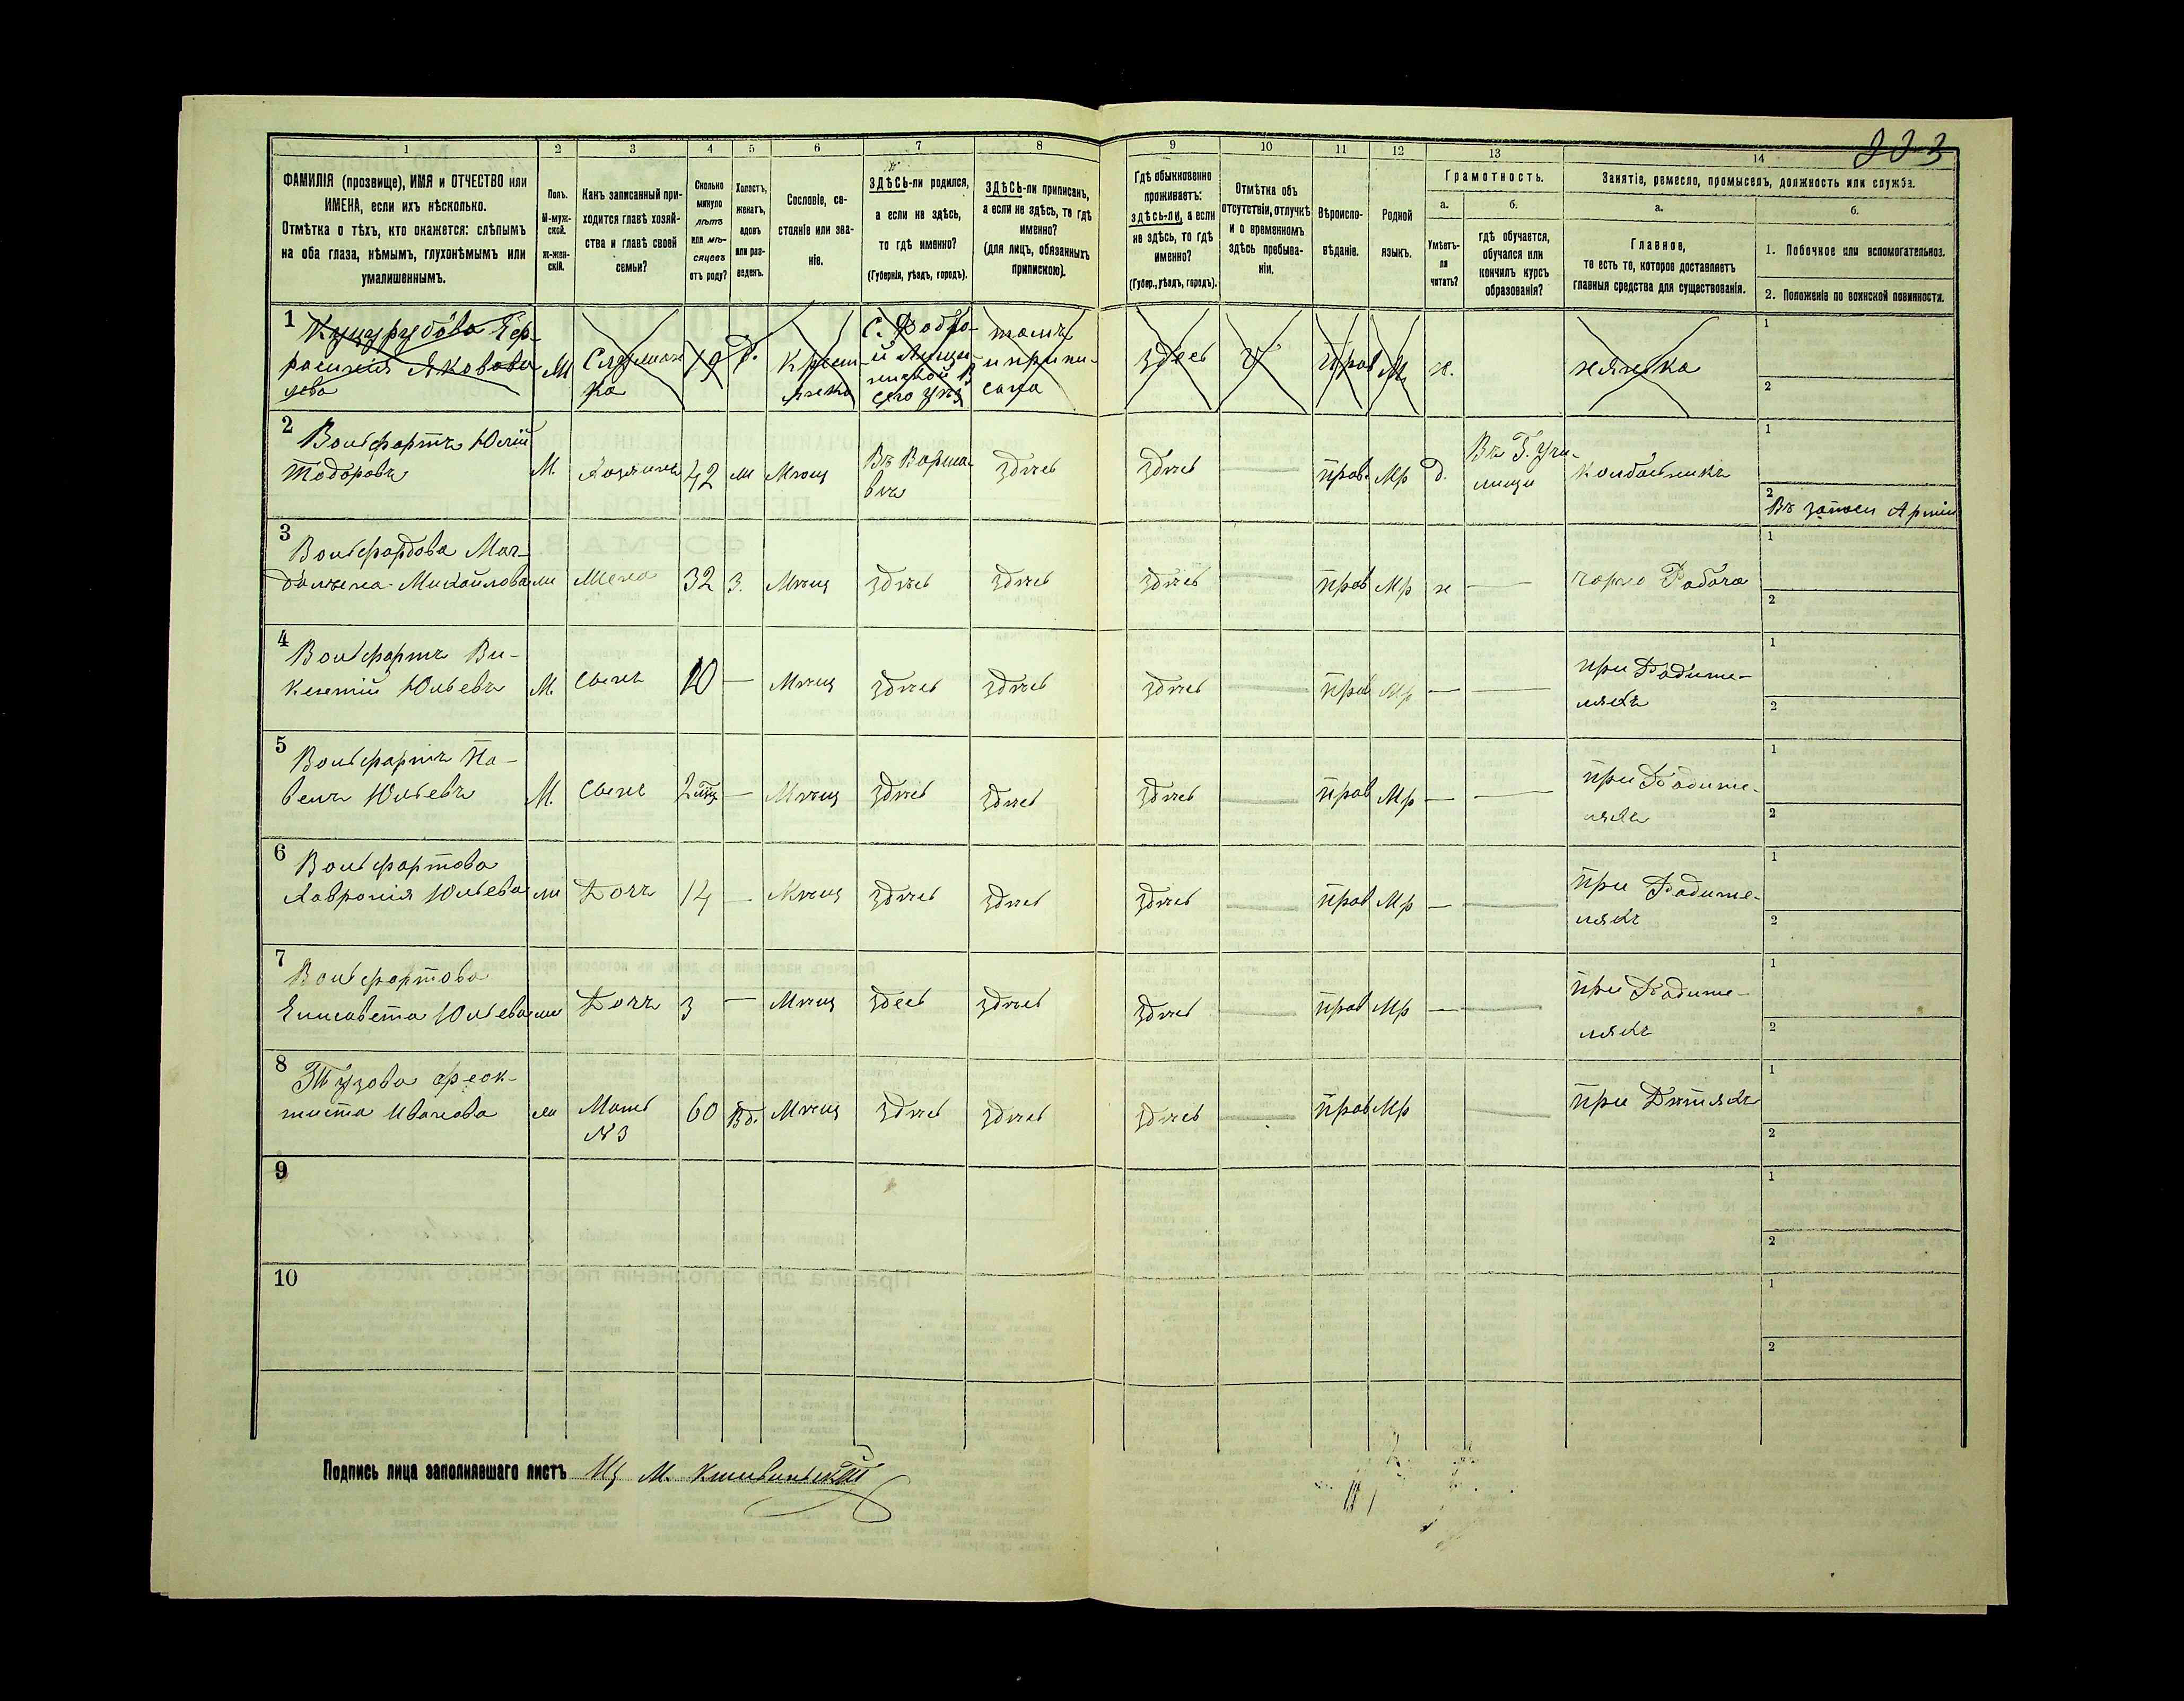 223
1 2 3 4 5 6 7 8 9 10 11 12 13 14
ФАМИЛІЯ (прозвище), ИМЯ и ОТЧЕСТВО или
ИМЕНА, если ихъ нѣсколько.
Отмѣтка о тѣхъ, кто окажется: слѣпымъ
на оба глаза, нѣмымъ, глухонѣмымъ или
умалишеннымъ.
Полъ.
М-муж-
ской.
Ж-жен-
скій.
Какъ записанный при-
ходится главѣ хозяй-
ства и главѣ своей
семьи?
Сколько
минуло
лѣтъ
или мѣ-
сяцевъ
отъ роду?
Холостъ,
женатъ,
вдовъ
или раз-
веденъ.
Сословіе, со-
стояніе или зва-
ніе.
ЗДѢСЬ-ли родился,
а если не здѣсь,
то гдѣ именно?
(Губернія, уѣздъ, городъ).
ЗДѢСЬ-ли приписанъ,
а если не здѣсь, то гдѣ
именно?
(для лицъ, обязанныхъ
припискою).
Гдѣ обыкновенно
проживаетъ:
здѣсь-ли, а если
не здѣсь, то гдѣ
именно?
(Губер., уѣздъ, городъ).
Отмѣтка объ
отсутствіи, отлучкѣ
и о временномъ
здѣсь пребыва-
ніи.
Вѣроиспо-
вѣданіе.
Родной
языкъ.
Грамотность.
а.
Умѣетъ-
ли
читать?
б.
гдѣ обучается,
обучался или
кончилъ курсъ
образованія?
Занятіе, ремесло, промыселъ, должность или служба.
а.
Главное,
то есть то, которое доставляетъ
главныя средства для существованія.
б.
1. Побочное или вспомогательное.
2. Положеніе по воинской повинности.
1
Яковова
М
19
Крест
янка
С. Добро
тамъ
и припи-
сана
здесь
прав
н.
нянька
1
2
2
Вольфартъ Юлій
Тодоровъ
М.
Хозяинъ
42
ж
Мѣщ
Въ Варша-
вѣ
здѣсь
здѣсь
прав.
Мр
д.
Въ Г. Учи-
лищи
колбасникъ
1
2
Въ запаси Арміи
3
Вольфардова Маг-
далена Михайлова
ж
Жена
32
з.
Мѣщ
здѣсь
здѣсь
здѣсь
прав
Мр
н
—
чорно Рабоча
1
2
4
Вольфартъ Ви-
кентій Юльевъ
М.
Сынъ
10
—
Мѣщ
здѣсь
здѣсь
здѣсь
прав
Мр
—
при Родите-
ляхъ
1
2
5
Вольфартъ Па-
велъ Юльевъ
М.
Сынъ
2
—
Мѣщ
здѣсь
здѣсь
здѣсь
прав
Мр
—
при Родите-
ляхъ
1
2
6
Вольфартова
Юльева
ж
Дочь
14
—
Мѣщ
здѣсь
здѣсь
здѣсь
прав
Мр
—
при Родите-
ляхъ
1
2
7
Вольфартова
Елисавета Юльева
ж
Дочь
3
—
Мѣщ
здесь
здѣсь
здѣсь
прав
Мр
—
при Родите-
ляхъ
1
2
8
Тузова Феок-
тиста Иванова
ж
Мать
N 3
60
Вд.
Мѣщ
здѣсь
здѣсь
здѣсь
прав
Мр
при Дѣтяхъ
1
2
9
1
2
10
1
2
Подпись лица заполнявшаго листъ